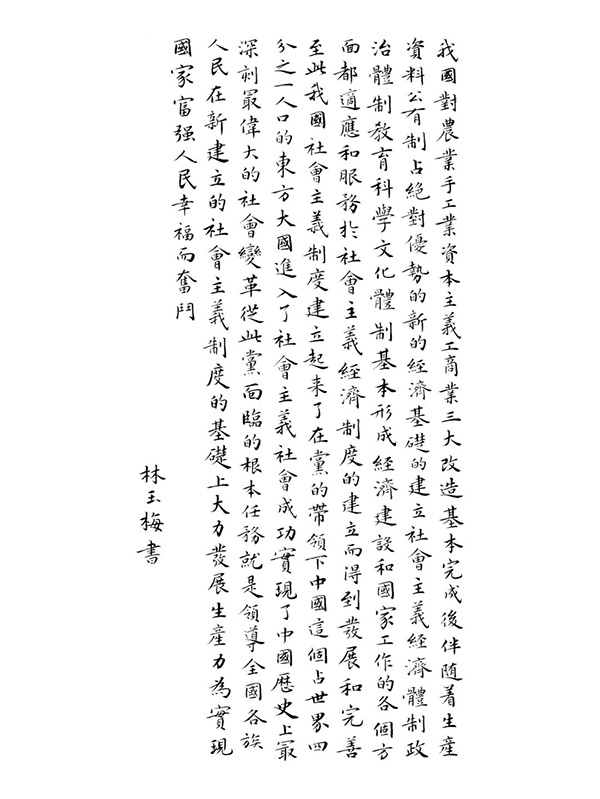 我國對農業手工業資本主義工商業三大改造基本完成後伴随着生產
資料公有制占絕對優勢的新的經濟基礎的建立社會主義經濟體制政
治體制教育科學文化體制基本形成經濟建設和國家工作的各個方
面都適應和服務於社會主義經濟制度的建立而得到發展和完善
至此我國社會主義制度建立起来了在黨的帶領下中國這個占世界四
分之一人口的東方大國進入了社會主義社會成功實現了中國歷史上最
深刻最偉大的社會變革從此黨面臨的根本任務就是領導全國各族
人民在新建立的社會主義制度的基礎上大力發展生產力為實現
國家富强人民幸福而奮鬥
林玉梅書